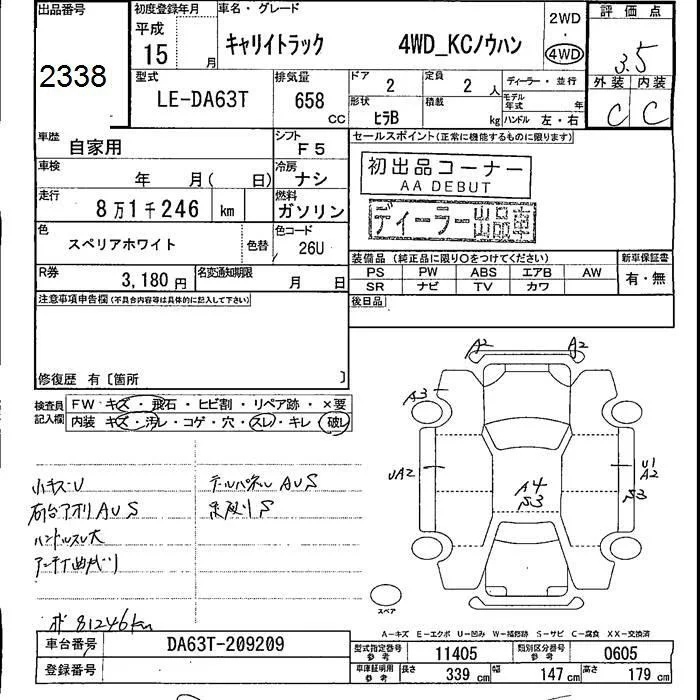 出品番号
2338
初度登録年月
平成
15 月
車名・グレード
キャリイトラック 4WD_KCノウハン
2WD
・
4WD
評価点
3.5
外装 内装
C C
型式
LE-DA63T
排気量
658 CC
ドア
2
定員
2 人
ディーラー・並行
形状
ヒラB
積載
kg
モデル年式 年
ハンドル 左・右
車歴
自家用
シフト
F5
車検
年 月( 日)
冷房
ナシ
走行
8万1千246 km
燃料
ガソリン
色
スペリアホワイト
色替
色コード
26U
R券
3,180円
名変通知期限
月 日
セールスポイント(正常に機能するものに限ります)
初出品コーナー
AA DEBUT
ディーラー出品車
装備品(純正品に限り○をつけてください)
PS PW ABS エアB AW
SR ナビ TV カワ
新車保証書
有・無
後日品
注意事項申告欄(不具合内容等は具体的に記入して下さい)
修復歴 有〔箇所 〕
検査員記入欄
FW キズ・飛石・ヒビ割・リペア跡・×要
内装 キズ・汚レ・コゲ・穴・スレ・キレ 破レ
小キズU
AUS
ハンドルスレ大
アンテナ曲がり
テールパネルAUS
S
ボ 81246km
A2 A2
A3
UA2
A4
S3
U1
A2
S3
スペア
A-キズ E-エクボ U-凹み W-補修跡 S-サビ C-腐食 XX-交換済
車台番号
DA63T-209209
登録番号
型式指定番号
参考
11405
類別区分番号
参考
0605
車庫証明用
参考
長さ 339 cm 幅 147 cm 高さ 179 cm